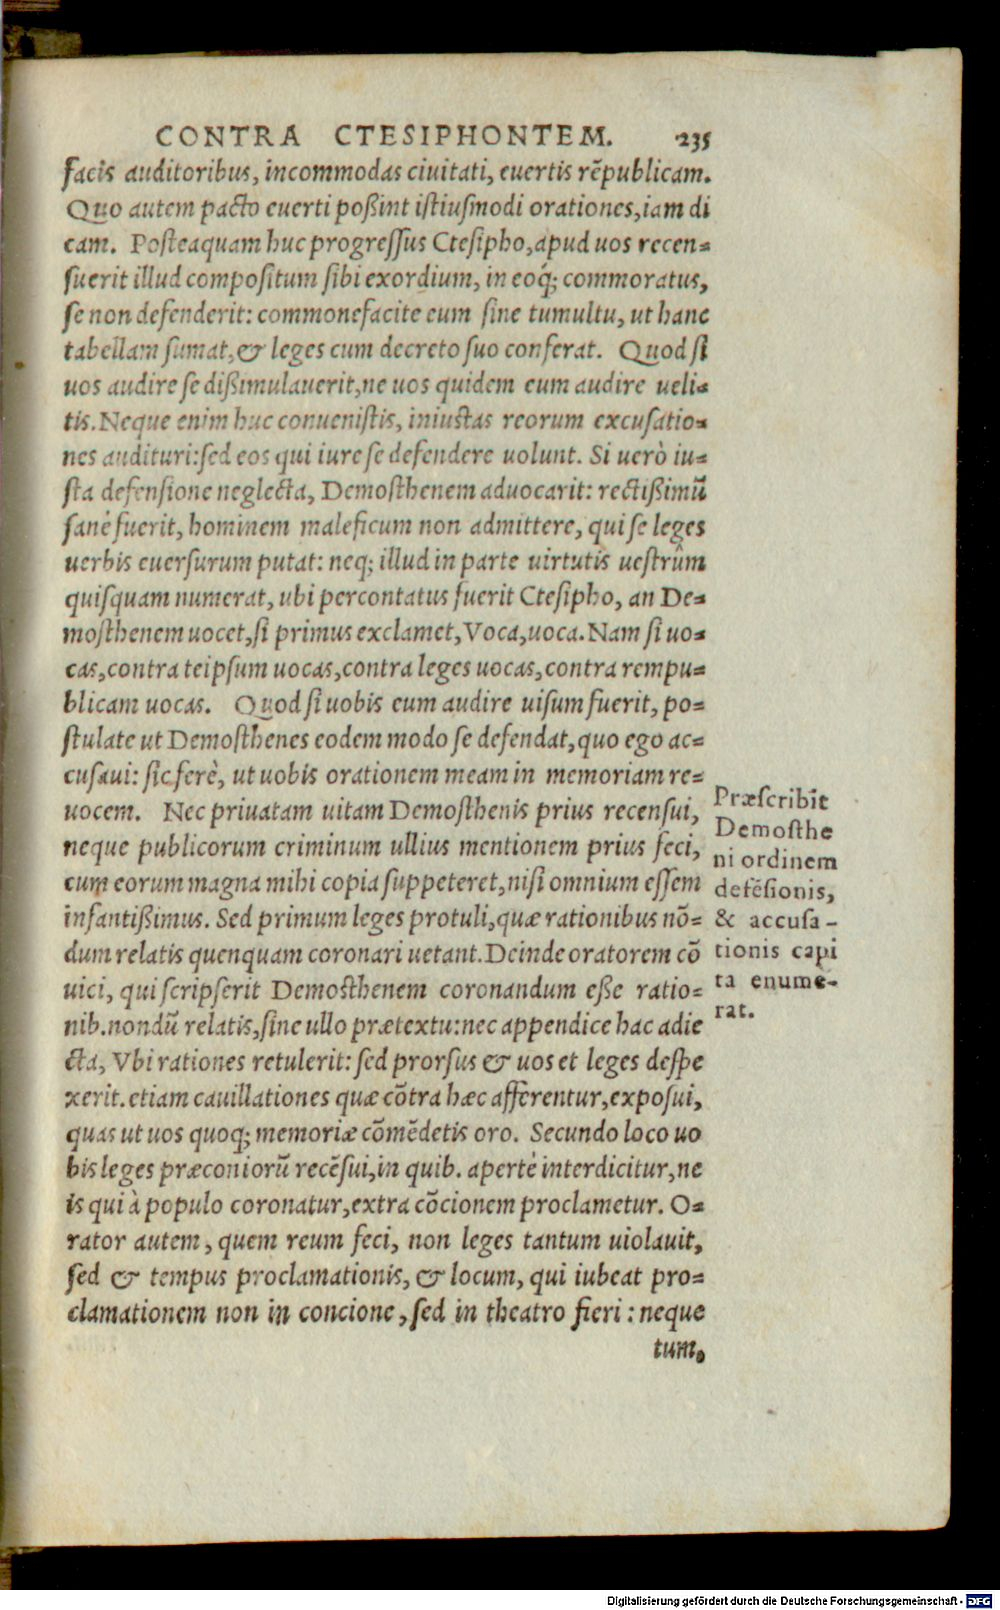 CONTRA CTESIPHONTEM. 235
facis auditoribus, incommodas ciuitati, euertis rẽpublicam.
Quo autem pacto euerti poßint istiusmodi orationes, iam di
cam. Posteaquam huc progressus Ctesipho, apud uos recen=
suerit illud compositum sibi exordium, in eoq́; commoratus,
se non defenderit: commonefacite eum sine tumultu, ut hanc
tabellam sumat, & leges cum decreto suo conferat. Quod si
uos audire se dißimulauerit, ne uos quidem eum audire ueli=
tis. Neque enim huc conuenistis, iniustas reorum excusatio=
nes audituri: sed eos qui iure se defendere uolunt. Si uerò iu=
sta defensione neglecta, Demosthenem aduocarit: rectißimũ
sanè fuerit, hominem maleficum non admittere, qui se leges
uerbis euersurum putat: neq; illud in parte uirtutis uestrûm
quisquam numerat, ubi percontatus fuerit Ctesipho, an De=
mosthenem uocet, si primus exclamet, Voca, uoca. Nam si uo=
cas, contra teipsum uocas, contra leges uocas, contra rempu=
blicam uocas. Quod si uobis eum audire uisum fuerit, po=
stulate ut Demosthenes eodem modo se defendat, quo ego ac=
cusaui: sic ferè, ut uobis orationem meam in memoriam re=
uocem. Nec priuatam uitam Demosthenis prius recensui,
neque publicorum criminum ullius mentionem prius feci,
cum eorum magna mihi copia suppeteret, nisi omnium essem
infantißimus. Sed primum leges protuli, quæ rationibus nõ=
dum relatis quenquam coronari uetant. Deinde oratorem cõ
uici, qui scripserit Demosthenem coronandum eße ratio=
nib. nondũ relatis, sine ullo prætextu: nec appendice hac adie
cta, Vbi rationes retulerit: sed prorsus & uos et leges despe
xerit. etiam cauillationes quæ cõtra hæc afferentur, exposui,
quas ut uos quoq; memoriæ cõmẽdetis oro. Secundo loco uo
bis leges præconiorũ recẽsui, in quib. apertè interdicitur, ne
is qui à populo coronatur, extra cõcionem proclametur. O=
rator autem, quem reum feci, non leges tantum uiolauit,
sed & tempus proclamationis, & locum, qui iubeat pro=
clamationem non in concione, sed in theatro fieri: neque
tum,
Præscribit
Demosthe
ni ordinem
defẽsionis,
& accusa-
tionis capi
ta enume-
rat.
Digitalisierung gefördert durch die Deutsche Forschungsgemeinschaft - DFG